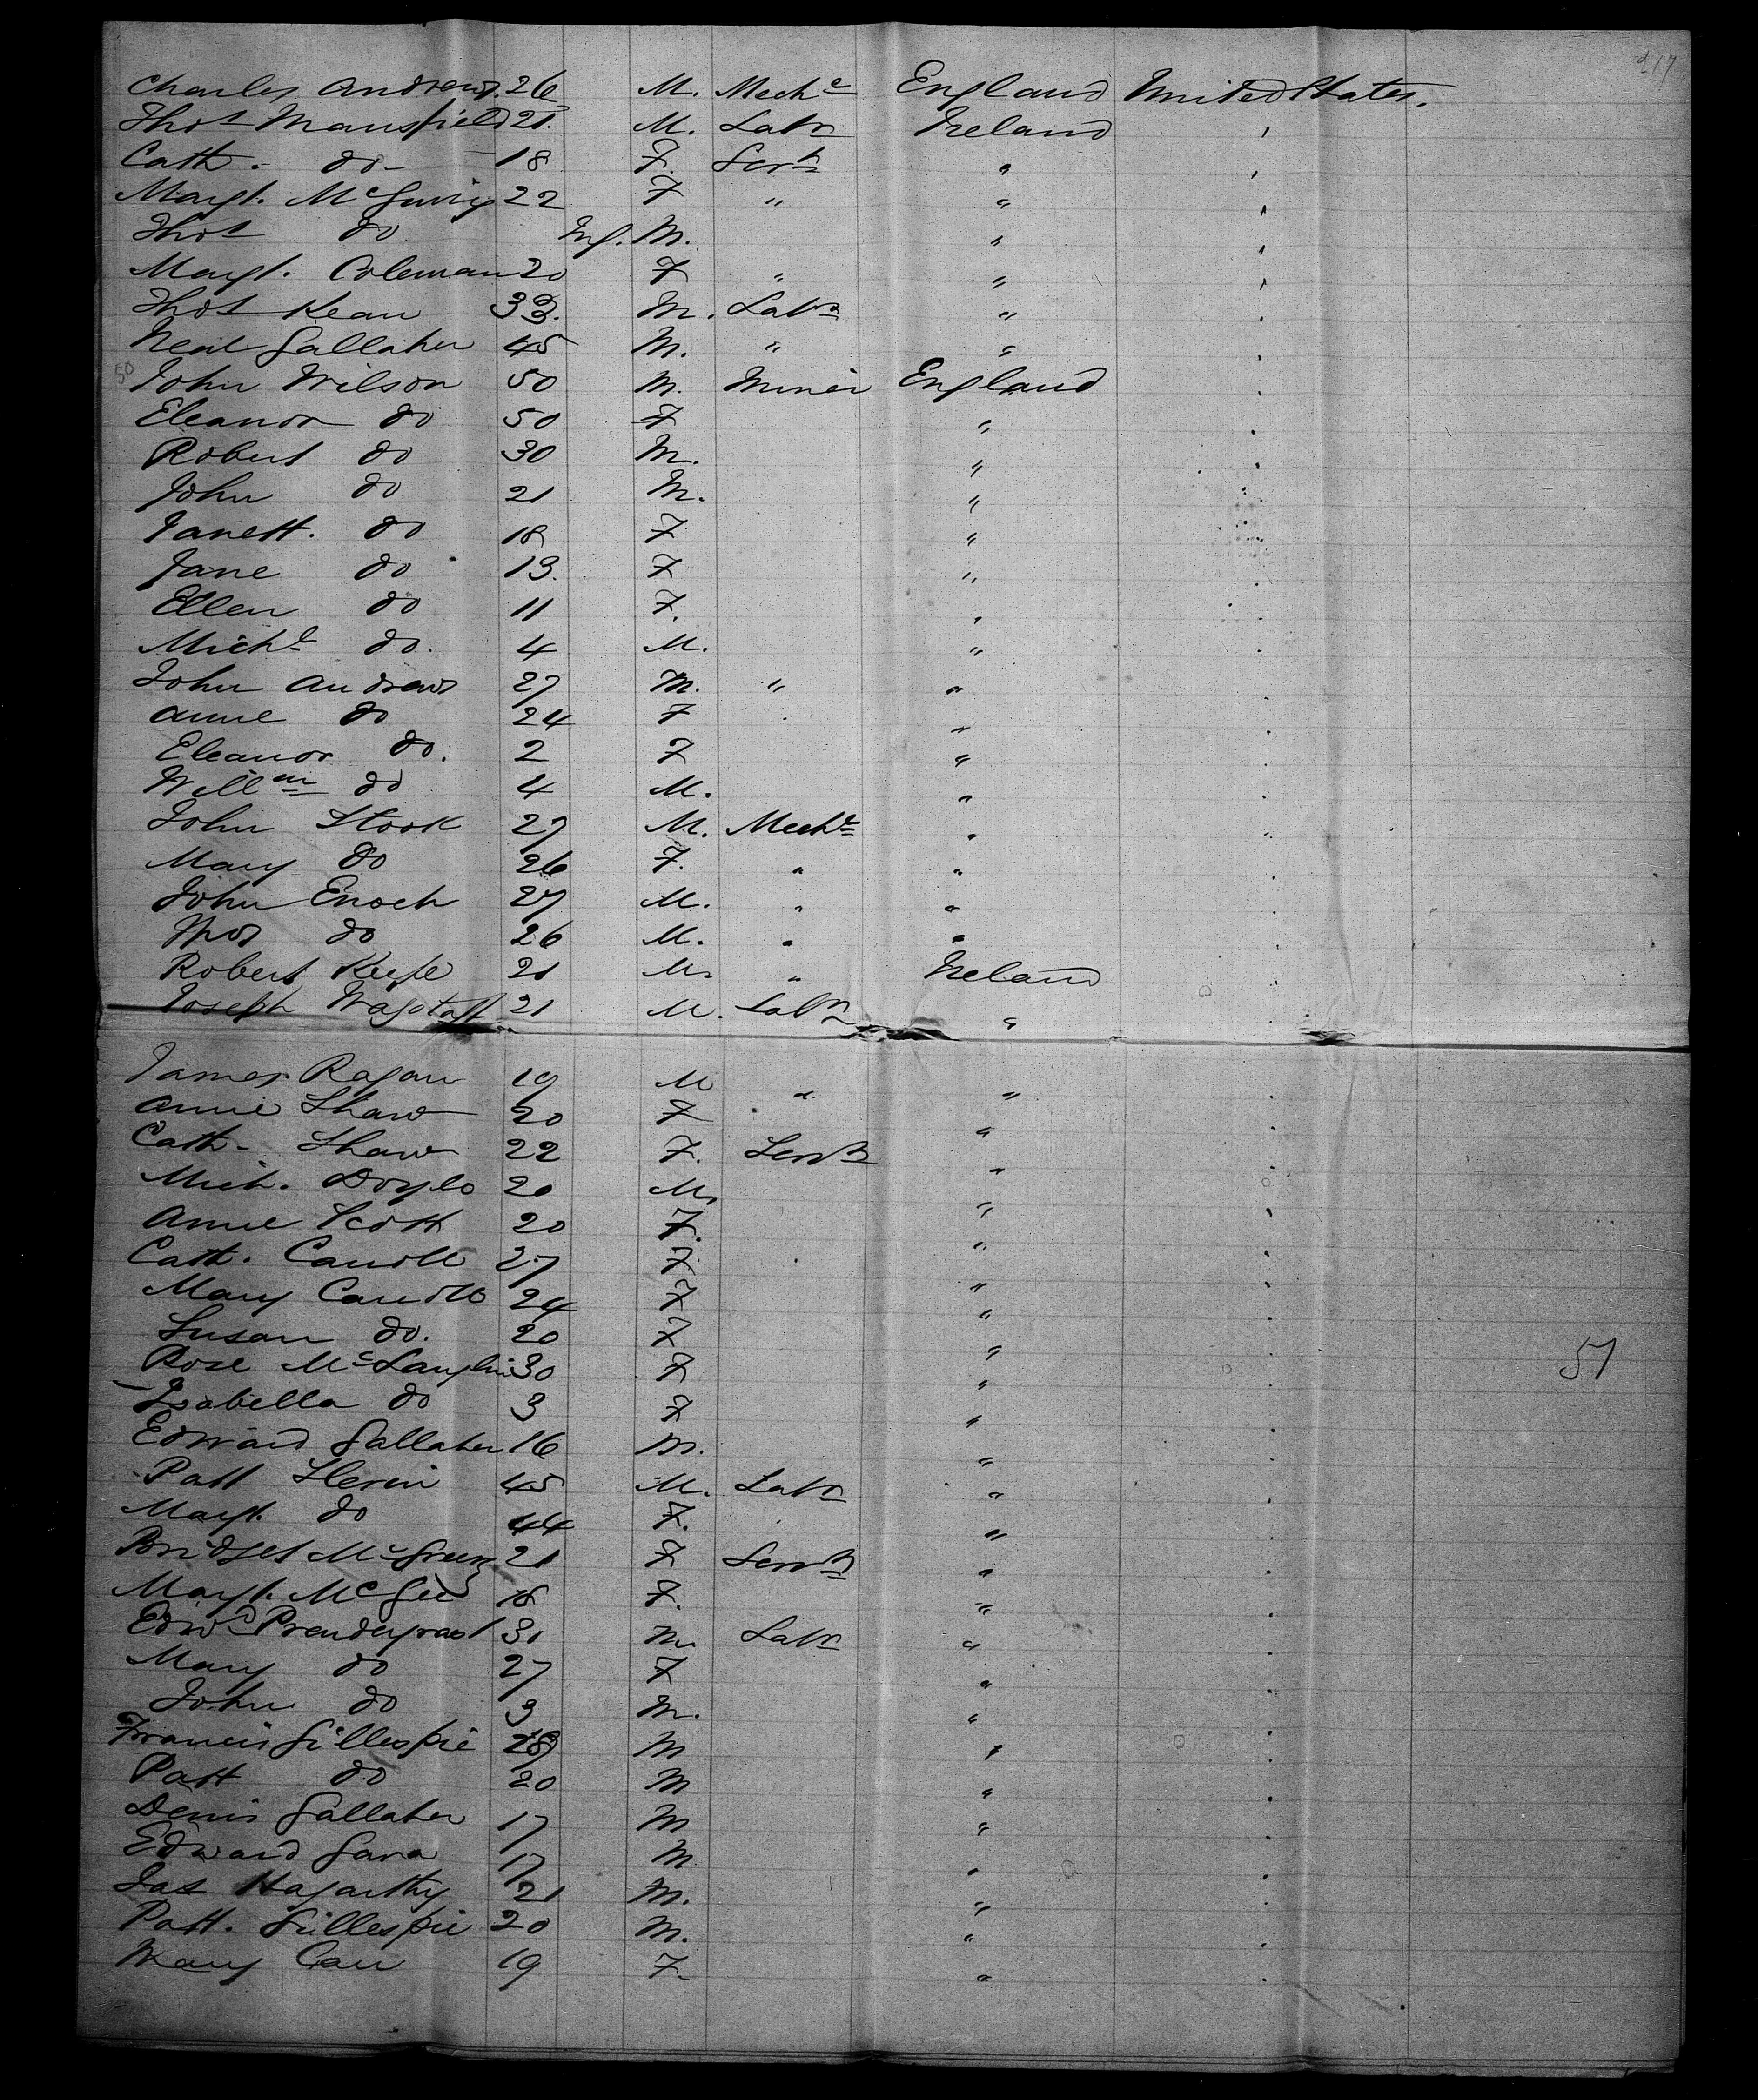 217
Charles Andrews 26 M. Mechc England United States.
Thos Mansfield 21. M. Labr Ireland '
Cath. do - 18 F. Servt " '
Margt. McGuing 22 F " " '
Thos do Inf. M. " '
Margt. Coleman 20 F " " '
Thos Kean 33. M. Labr " '
Neil Gallaher 45 M. " " '
50 John Wilson 50 M. Miner England '
Eleanor do 50 F "
Robert do 30 M. "
John do 21 M. "
Janett. do 18 F "
Jane do 13. F "
Ellen do 11 F. "
Michl do. 4 M. "
John Andrews 27 M. " "
Anne do 24 F "
Eleanor do. 2 F "
Willm do 4 M. "
John Stook 27 M. Mechc "
Mary do 26 F. " "
John Enoch 27 M. " "
Thos do 26 M. " "
Robert Keefe 21 M. " Ireland
Joseph Wagstaff 21 M. Labr "
James Ragan 19 M " "
Annie Shaw 20 F "
Cath. Shaw 22 F. Servt "
Mich. Doyle 20 M. "
Anne Scott 20 F. "
Cath. Carroll 27 F "
Mary Carroll 24 F "
Susan do. 20 F "
Rose McLauglin 30 F " 51
Isabella do 3 F "
Edward Gallaher 16 M. "
Patt Slevin 45 M. Labr "
Margt. do 44 F. "
Bridget 21 F Servt "
Margt. McGee 18 F. "
Edwd Prendergrast 30 M. Labr "
Mary do 27 F "
John do 3 M. "
Francis Gillespie M "
Patt do 20 M "
Denis Gallaher 17 M "
Edward Gara 17 M "
Jas Hagarthy 21 M. "
Patt. Gillespie 20 M. "
Mary Carr 19 F. "